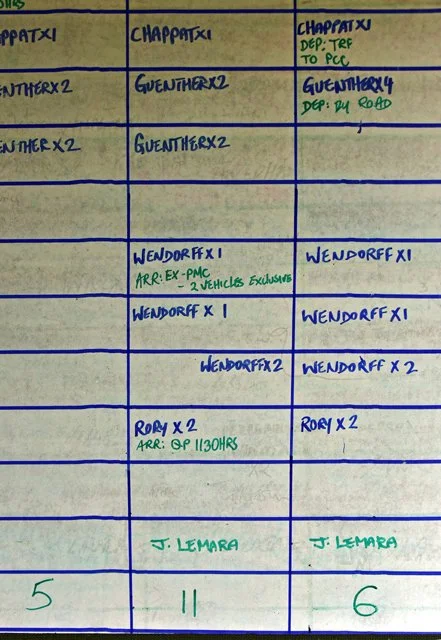 CHAPPATX1
CHAPPATX1
DEP: TRF
TO PCC
GUENTHERX2
GUENTHERX4
DEP: BY ROAD
GUENTHERX2
WENDORFFX1
ARR: EX-PMC
- 2 VEHICLES EXCLUSIVE
WENDORFFX1
WENDORFF X 1
WENDORFFX1
WENDORFFX2
WENDORFF X 2
RORY X 2
ARR: @P 1130HRS
RORY X 2
J. LEMARA
J. LEMARA
5
11
6